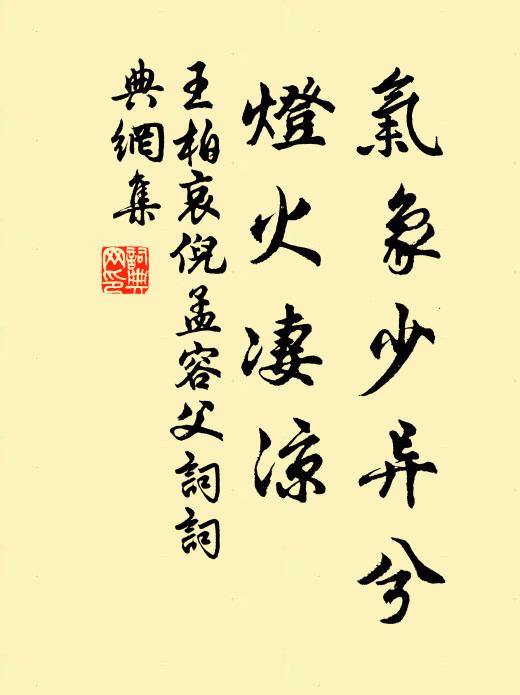 氣象少异兮
燈火凄涼
王柏哀倪孟容父詞詞
典網集
詞典網印